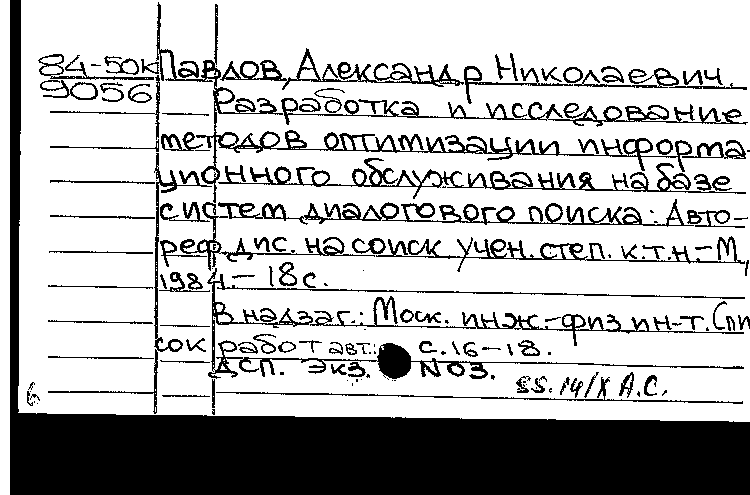 84-50к Павлов, Александр Николаевич.
9056 Разработка и исследование
методов оптимизации информа-
ционного обслуживания на базе
систем диалогового поиска: Авто-
реф. дис. на соиск учен. степ. к.т.н.-М,
1984.- 18с.
В надзаг.: Моск. инж.-физ ин-т. Спи
сок работ авт.: с.16-18.
ДСП. Экз. N03.
А.С.
6